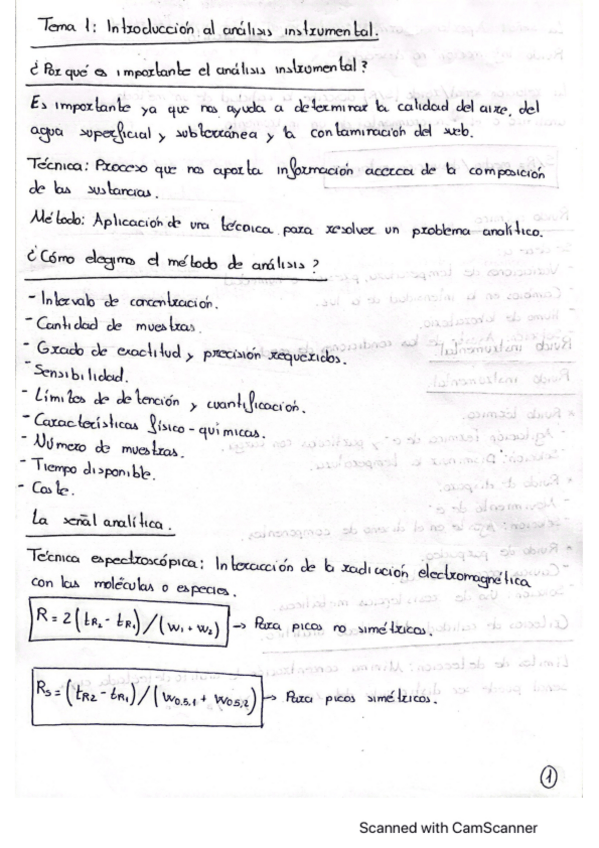 Tema 1: Introducción al análisis instrumental.
¿Por qué es importante el análisis instrumental?
Es importante ya que nos ayuda a determinar la calidad del aire, del
agua superficial y subterránea y la contaminación del suelo.
Técnica: Proceso que nos aporta información acerca de la composición
de las sustancias.
Método: Aplicación de una técnica para resolver un problema analítico.
¿Cómo elegimo el método de análisis?
- Intervalo de concentración.
- Cantidad de muestras.
- Grado de exactitud y precisión requeridos.
- Sensibilidad.
- Límites de detención y cuantificación.
- Características físico-químicas.
- Número de muestras.
- Tiempo disponible.
- Coste.
La señal analítica.
Técnica espectroscópica: Interacción de la radiación electromagnética
con las moléculas o especies.
R = 2(tR2 - tR1)/(w1 + w2) → Para picos no simétricos.
Rs = (tR2 - tR1)/(w0.5,1 + w0.5,2) → Para picos simétricos.
1
Scanned with CamScanner